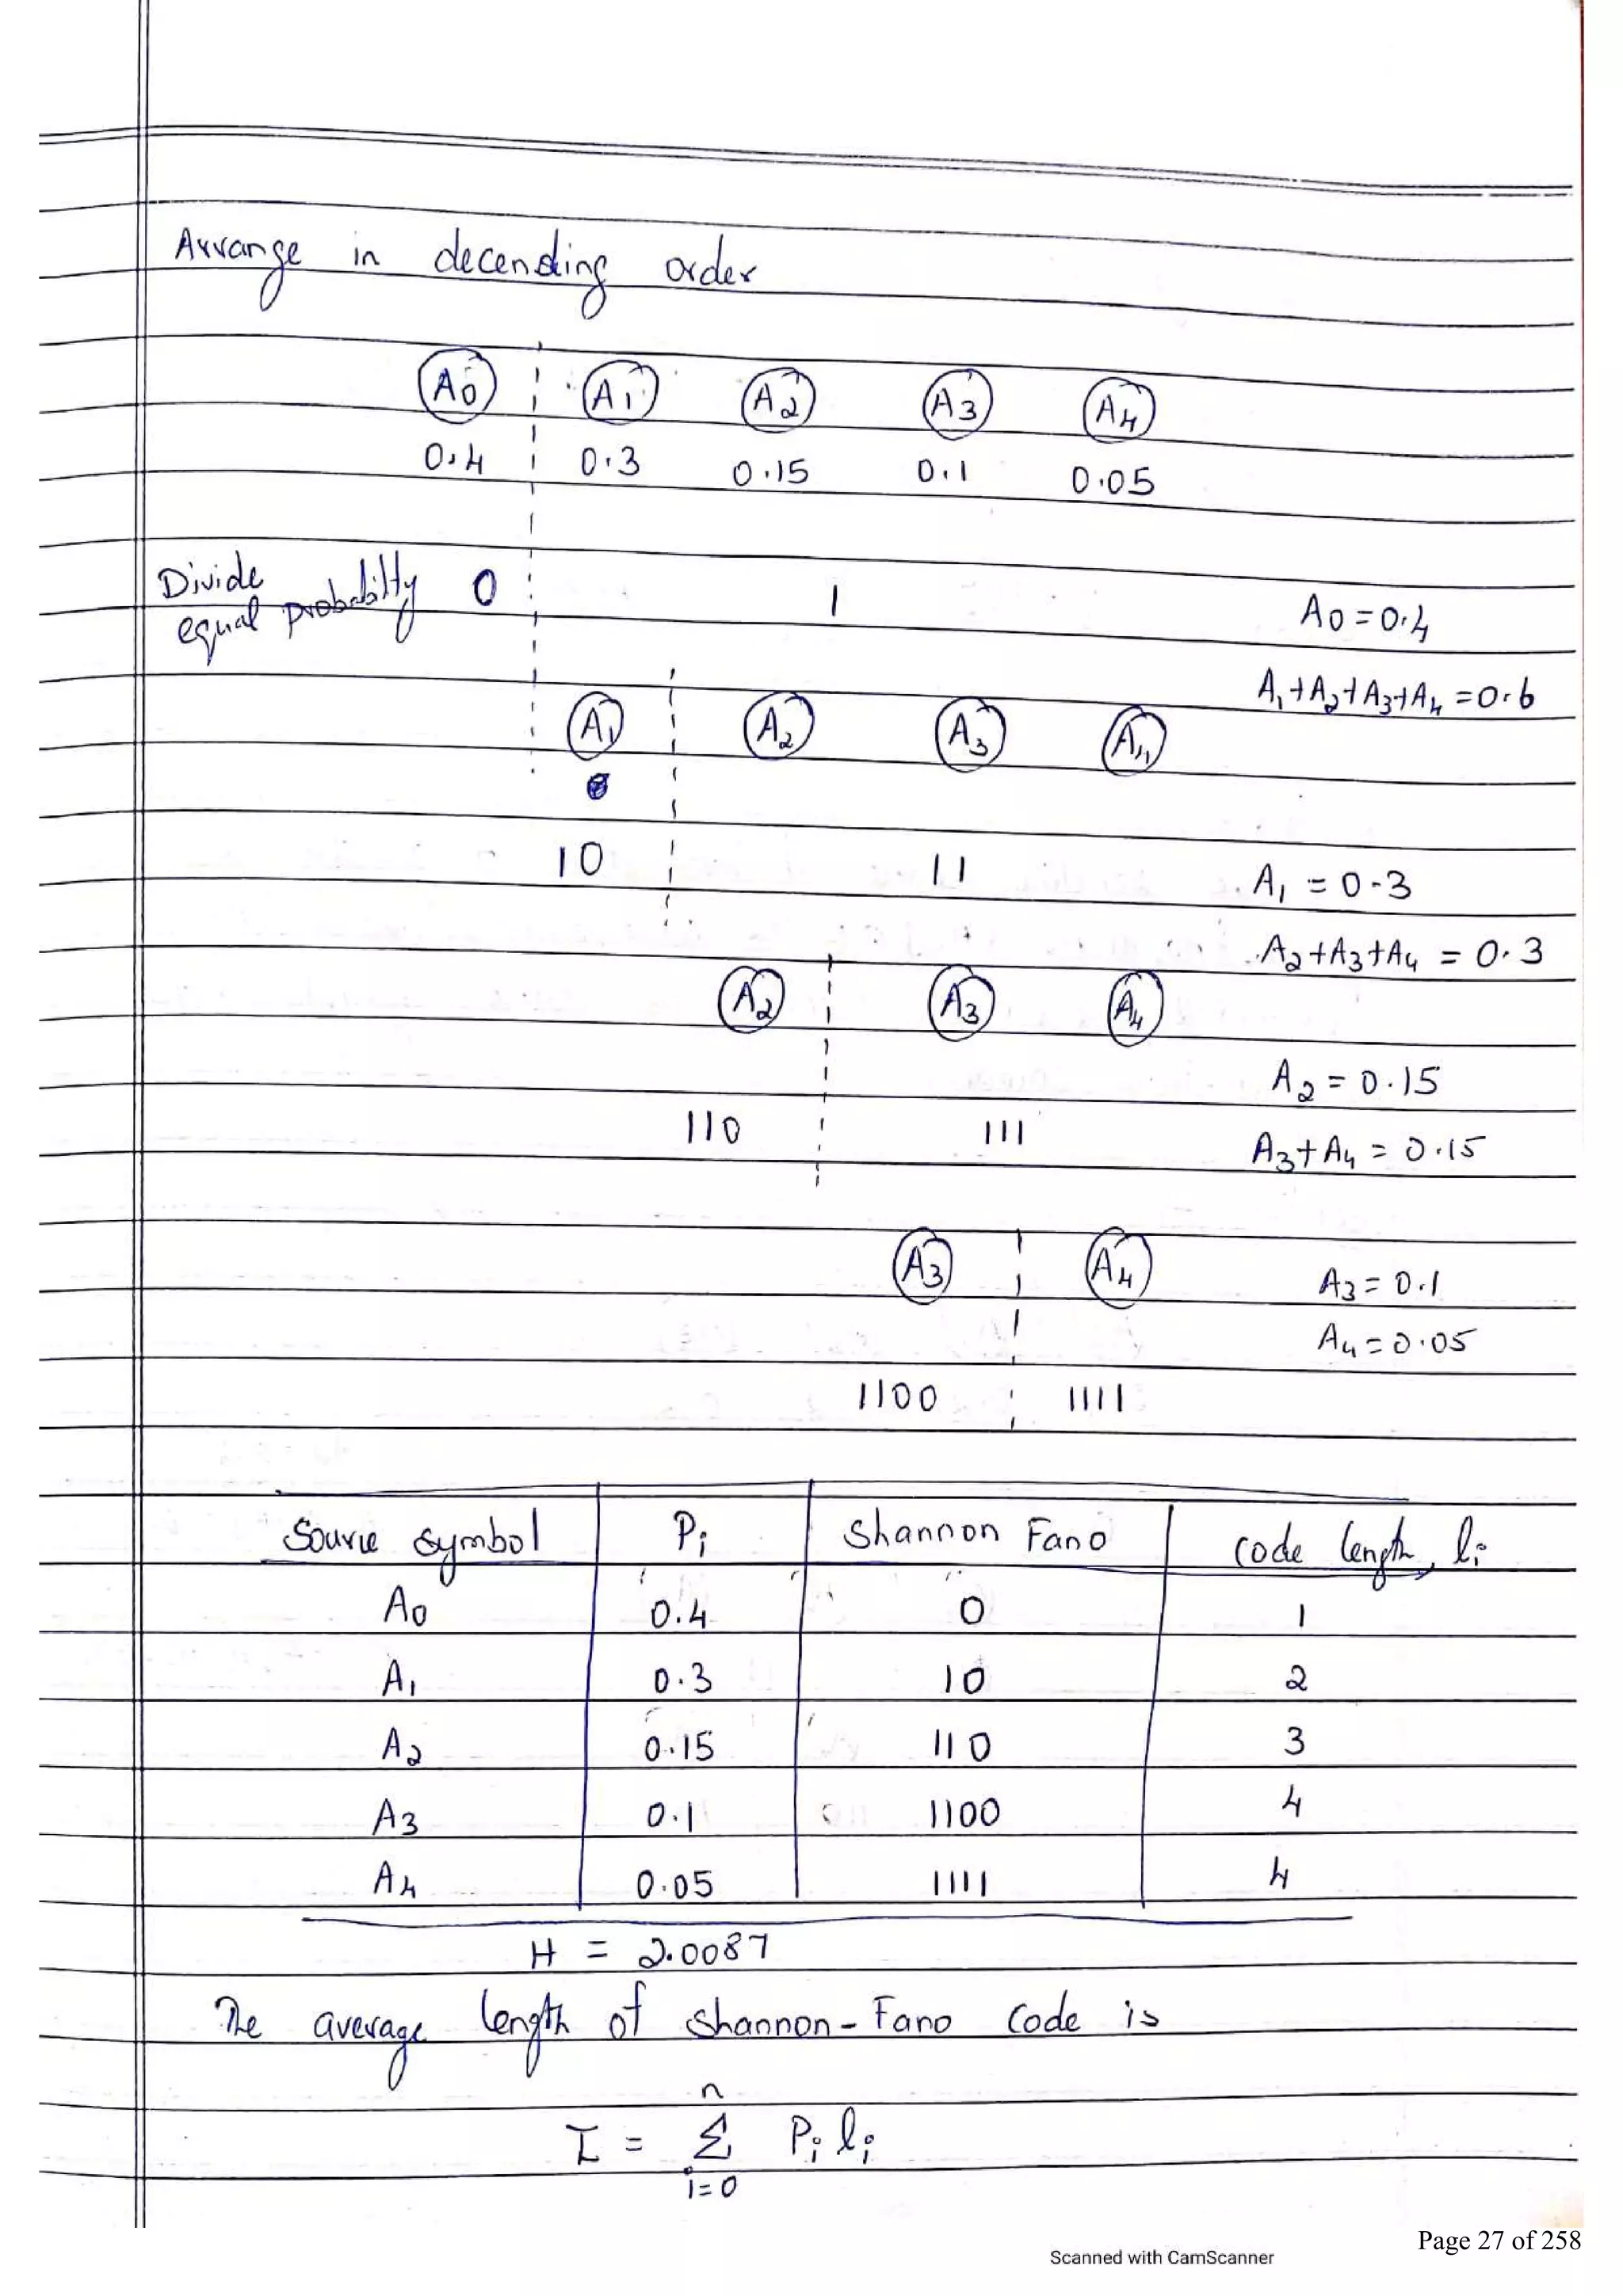 Arrange in decending order
A0 A1 A2 A3 A4
0.4 0.3 0.15 0.1 0.05
Divide
equal probabilty 0 1 A0 = 0.4
A1+A2+A3+A4 = 0.6
A1 A2 A3 A4
10 11 A1 = 0.3
A2+A3+A4 = 0.3
A2 A3 A4
A2 = 0.15
110 111 A3+A4 = 0.15
A3 A4 A3 = 0.1
A4 = 0.05
1100 1111
Source symbol Pi Shannon Fano code length, li
A0 0.4 0 1
A1 0.3 10 2
A2 0.15 110 3
A3 0.1 1100 4
A4 0.05 1111 4
H = 2.0087
The average length of Shannon-Fano Code is
L̅ = n Σ i=0 Pi li
Page 27 of 258
Scanned with CamScanner